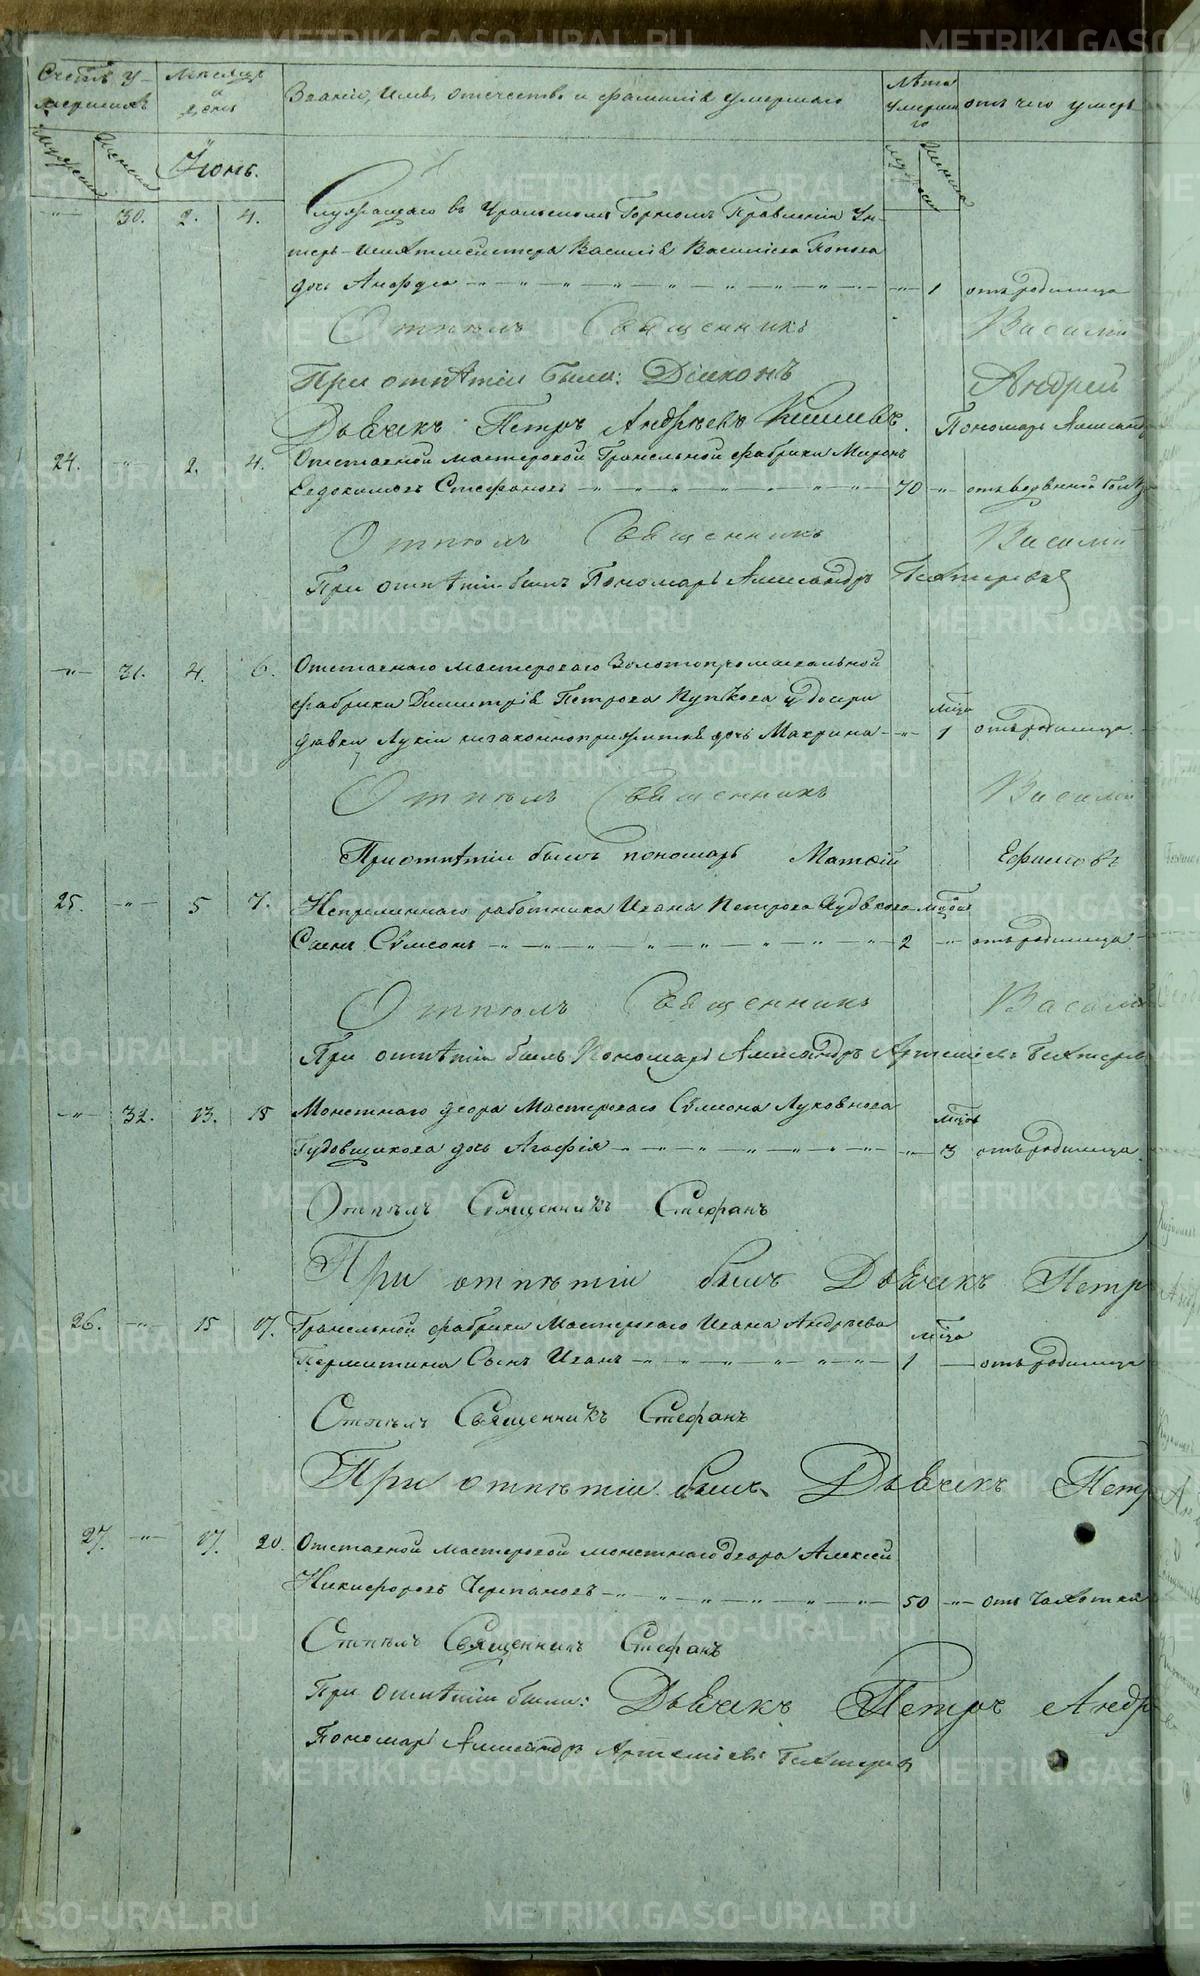 Счетъ у-
мершихъ
Мѣсяцъ
и
день
Званіе, имя, отчество и фамилія умершаго
Лѣта
умерша
го
отъ чего умеръ
мужеска
женска
Іюнь.
мужеск
женска
-"- 30. 2. 4. Служащаго въ Уральскомъ Горномъ Правленіи Ун-
теръ-шихтмейстера Василія Васильева Попова
дочь Анфуса -"- 1 отъ родимца
Отпѣлъ Священникъ Василій
При отпѣтіи были: Діаконъ Андрей
Дьячекъ Петръ Андреевъ
Пономарь Александръ
24. -"- 2. 4. Отставной мастеровой Гранильной фабрики Миронъ
Евдокимовъ Стефановъ 70 -"- отъ водяной болѣз
Отпѣлъ Священникъ Василій
При отпѣтіи былъ Пономарь Александръ Бехтеревъ
-"- 31. 4. 6. Отставнаго мастероваго Золотопромывальной
фабрики Димитрія Петрова у дочери
мѣсяца
дѣвки Лукіи незаконноприжитая дочь Макрина -"- 1 отъ родимца
Отпѣлъ Священникъ Василій
При отпѣтіи былъ пономарь Матѳій Ефимовъ
25. -"- 5 7. Непремѣннаго работника Ивана Петрова мѣсяца
Сынъ Сѵмеонъ 2 -"- отъ родимца
Отпѣлъ Священникъ Василій
При отпѣтіи былъ Пономарь Александръ Артеміевъ Бехтерев
-"- 32. 13. 15 Монетнаго двора Мастероваго Сѵмеона
мѣсяц
Гудовщикова дочь Агафія -"- 3 отъ родимца
Отпѣлъ Священникъ Стефанъ
При отпѣтіи былъ Дьячекъ Петр
26. -"- 15 17. Гранильной фабрики Мастероваго Ивана Андреева
мѣсяца
Пермитина Сынъ Иванъ 1 — отъ родимца
Отпѣлъ Священникъ Стефанъ
При отпѣтіи былъ Дьячекъ Петр
27. -"- 17. 20. Отставной мастеровой монетнаго двора Алексѣй
Никифоровъ Черепановъ 50 -"- отъ чахотки
Отпѣлъ Священникъ Стефанъ
При отпѣтіи были: Дьячекъ Петръ Андр
Пономарь Александръ Артеміевъ Бехтеревъ
METRIKI.GASO-URAL.RU